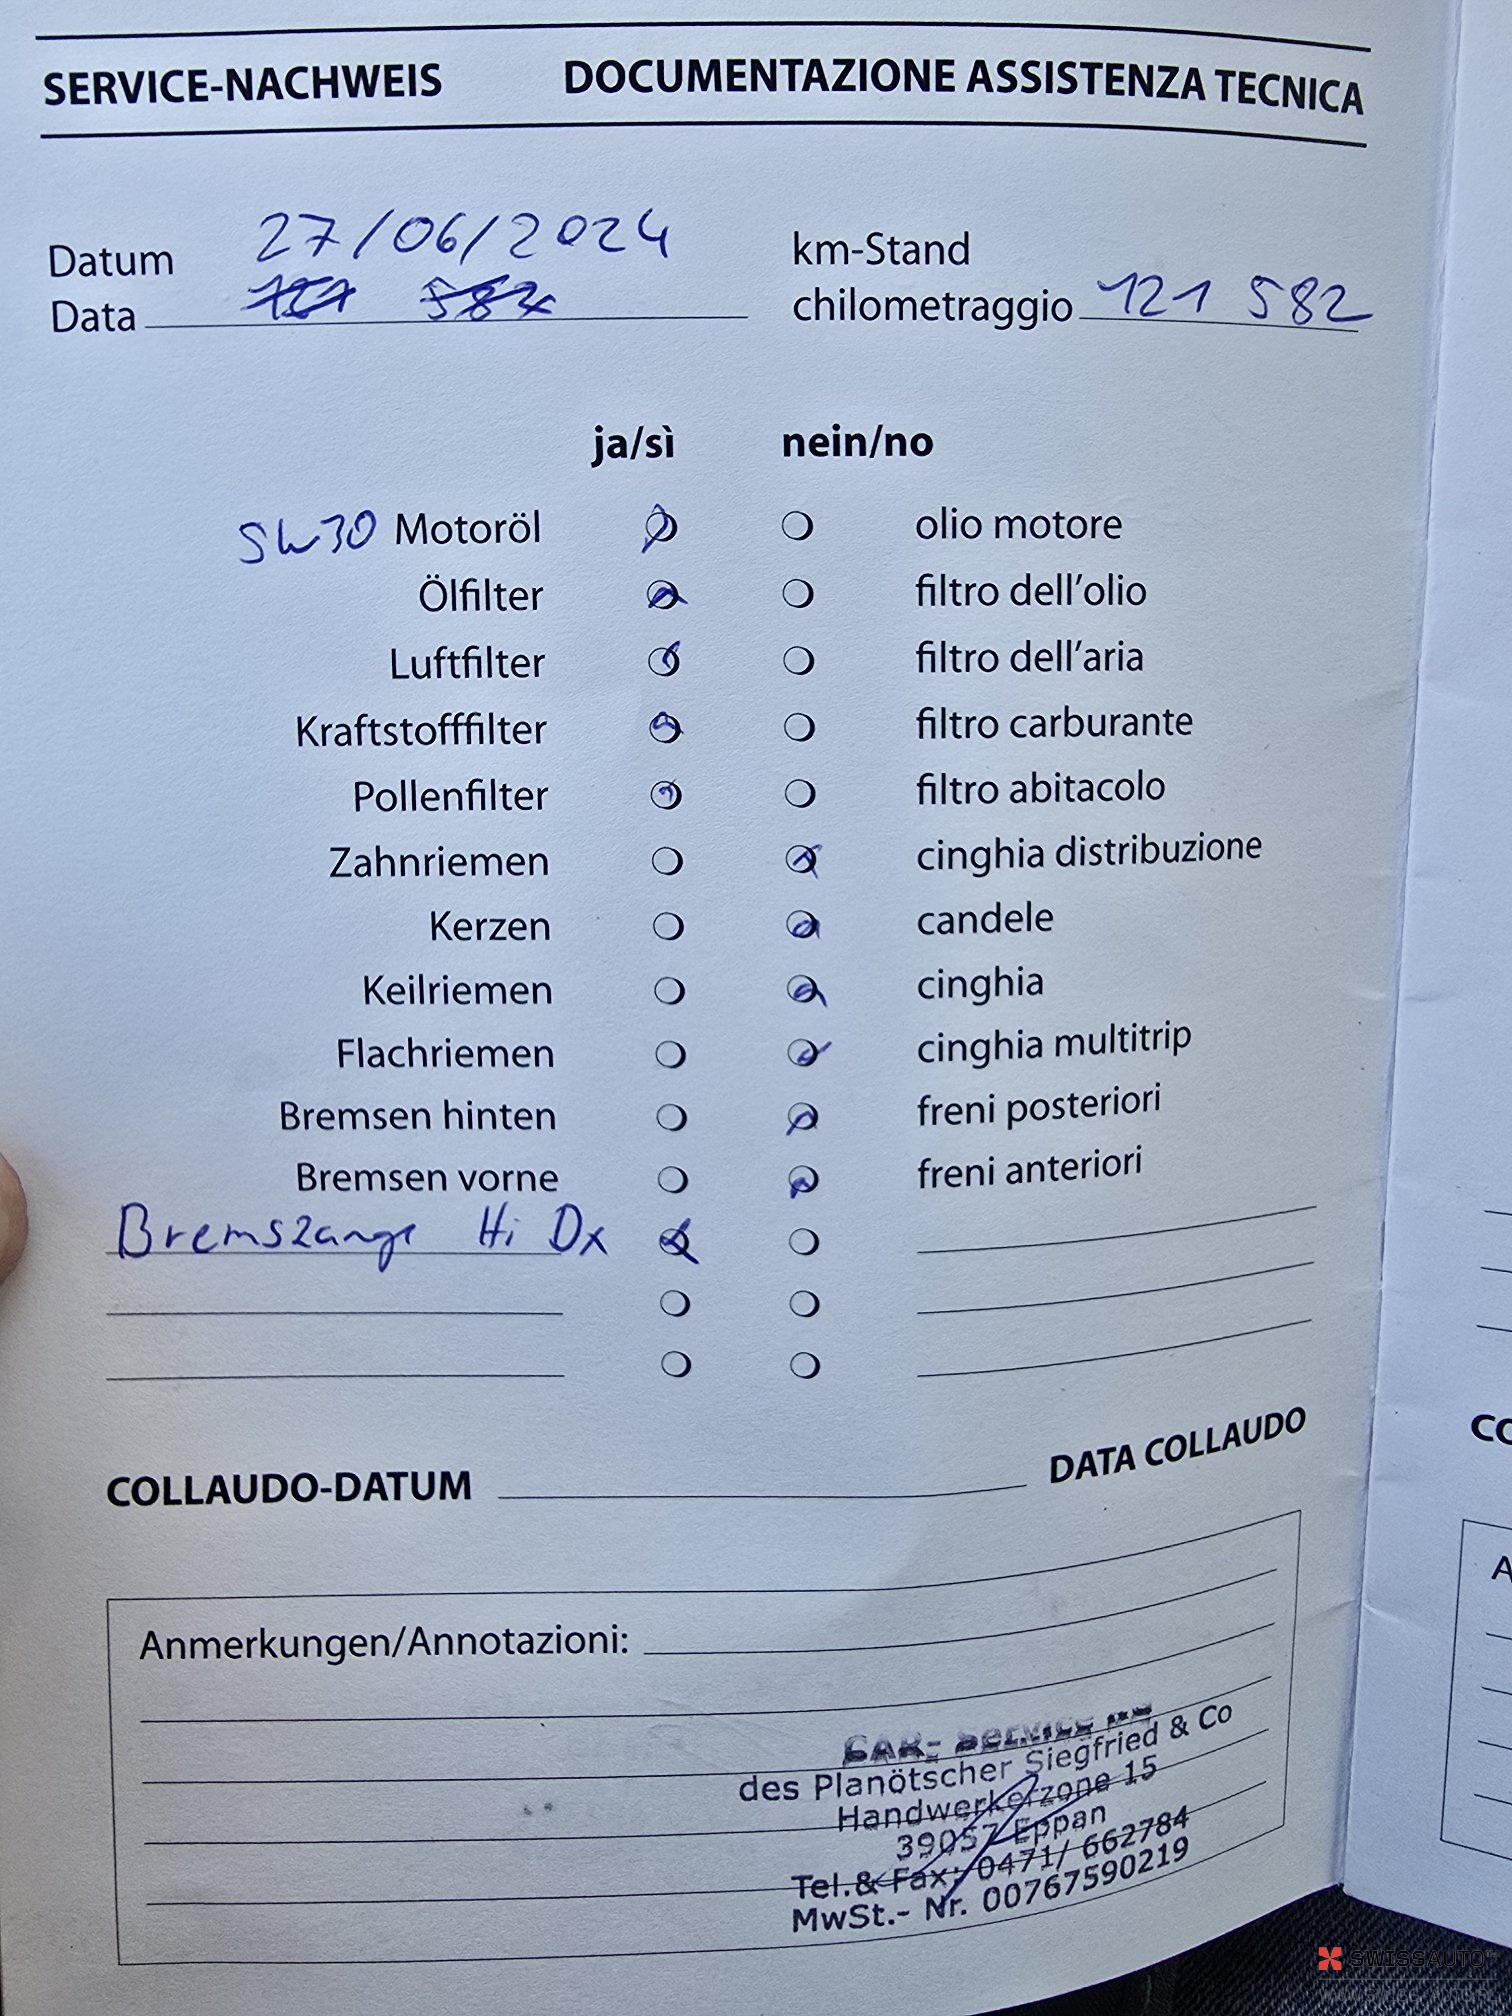 SERVICE-NACHWEIS DOCUMENTAZIONE ASSISTENZA TECNICA
Datum 27/06/2024 km-Stand
Data chilometraggio 121 582
ja/sì nein/no
5W30 Motoröl olio motore
Ölfilter filtro dell'olio
Luftfilter filtro dell'aria
Kraftstofffilter filtro carburante
Pollenfilter filtro abitacolo
Zahnriemen cinghia distribuzione
Kerzen candele
Keilriemen cinghia
Flachriemen cinghia multitrip
Bremsen hinten freni posteriori
Bremsen vorne freni anteriori
Bremszange Hi Dx
COLLAUDO-DATUM DATA COLLAUDO
Anmerkungen/Annotazioni:
CAR- Service
des Planötscher Siegfried & Co
Handwerkerzone 15
39057 Eppan
Tel.& Fax: 0471/ 662784
MwSt.- Nr. 00767590219
SWISSAUTO